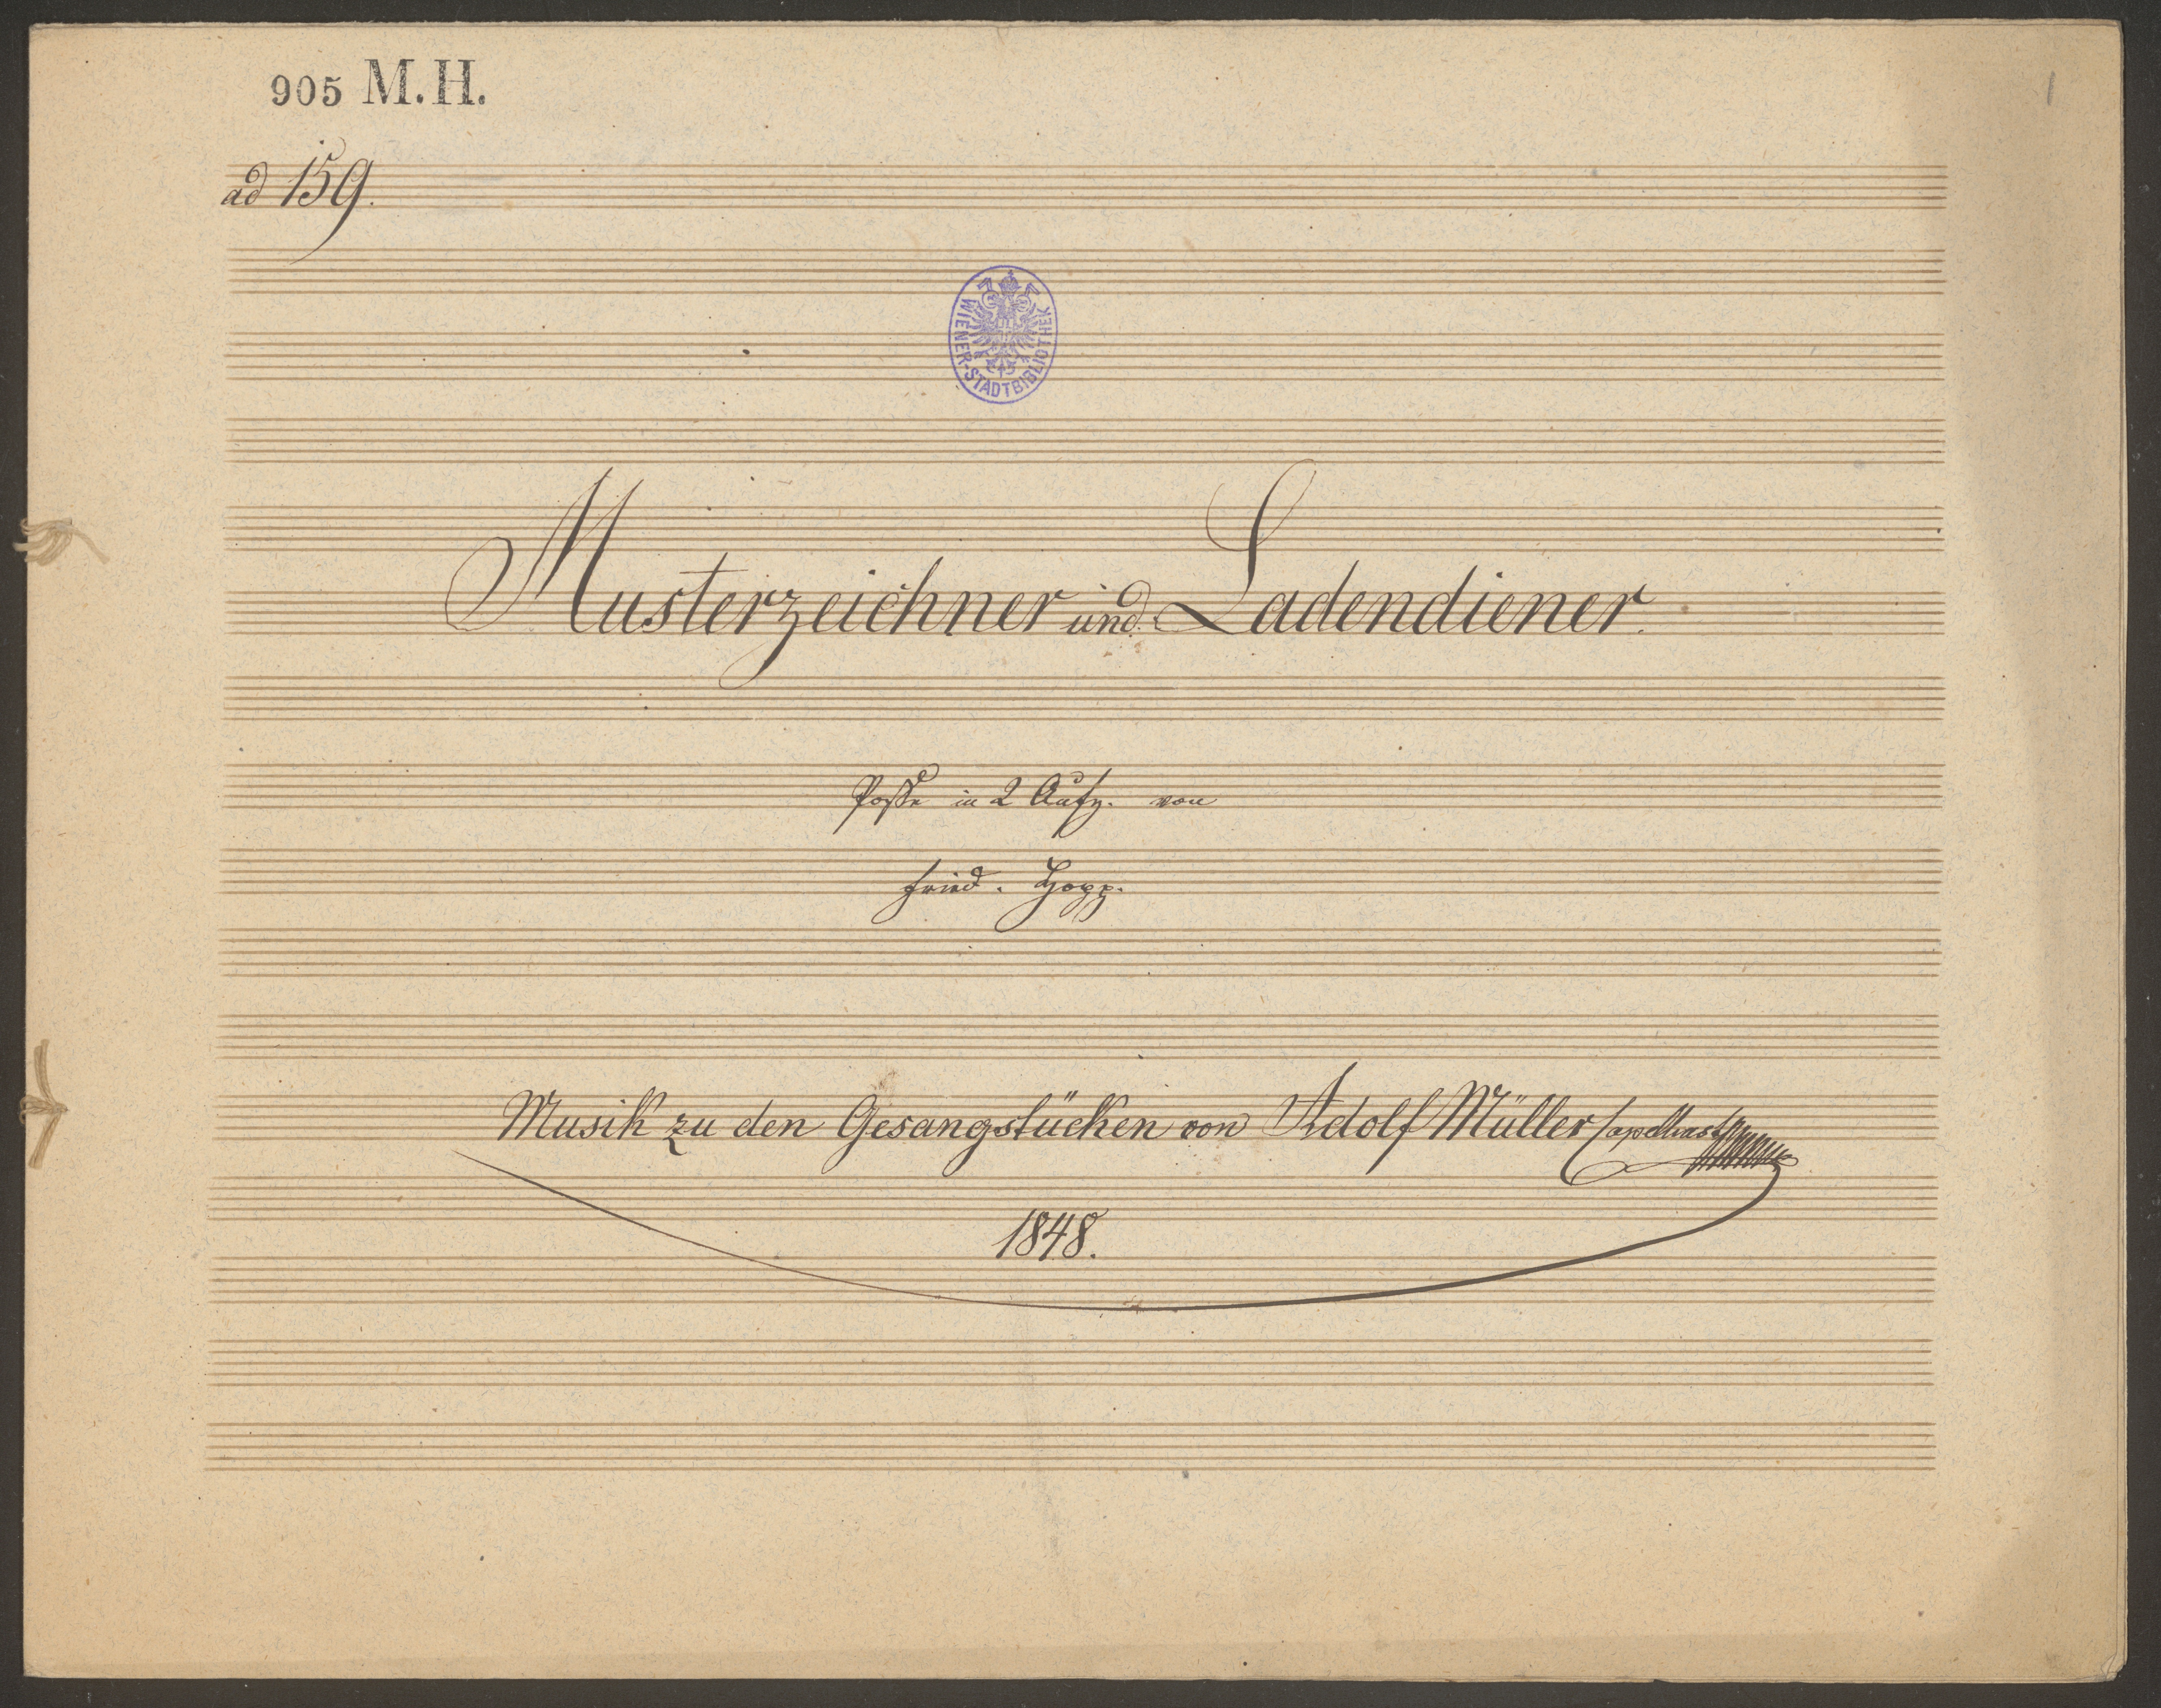 905 M. H.
1
ad 159.
WIENER-STADTBIBLIOTHEK
Musterzeichner und Ladendiener.
Posse in 2 Aufz. von
Fried. Hopp.
Musik zu den Gesangstücken von Adolf Müller Capellmst
1848.